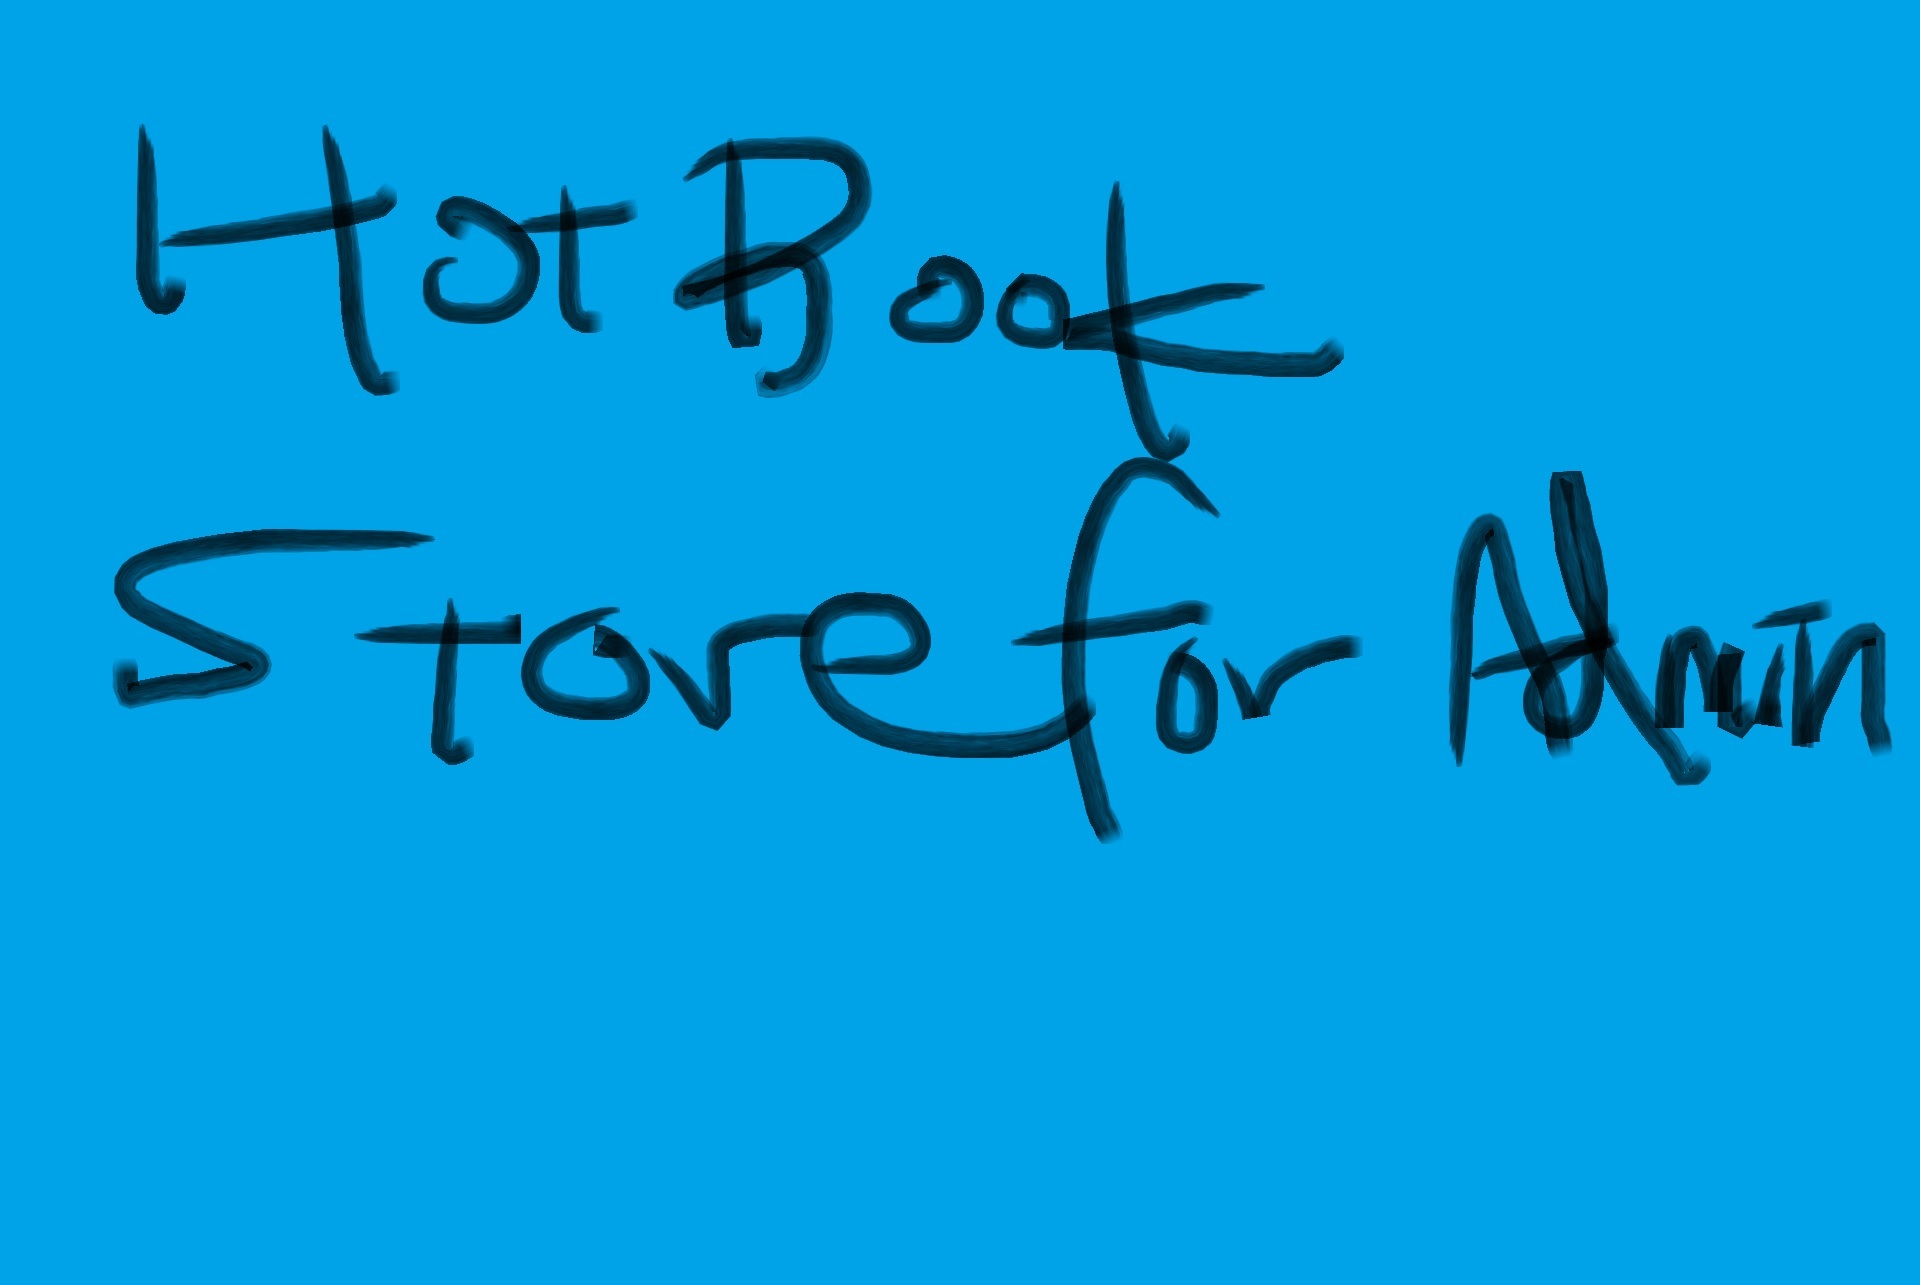 Hot Book
Store for Admin